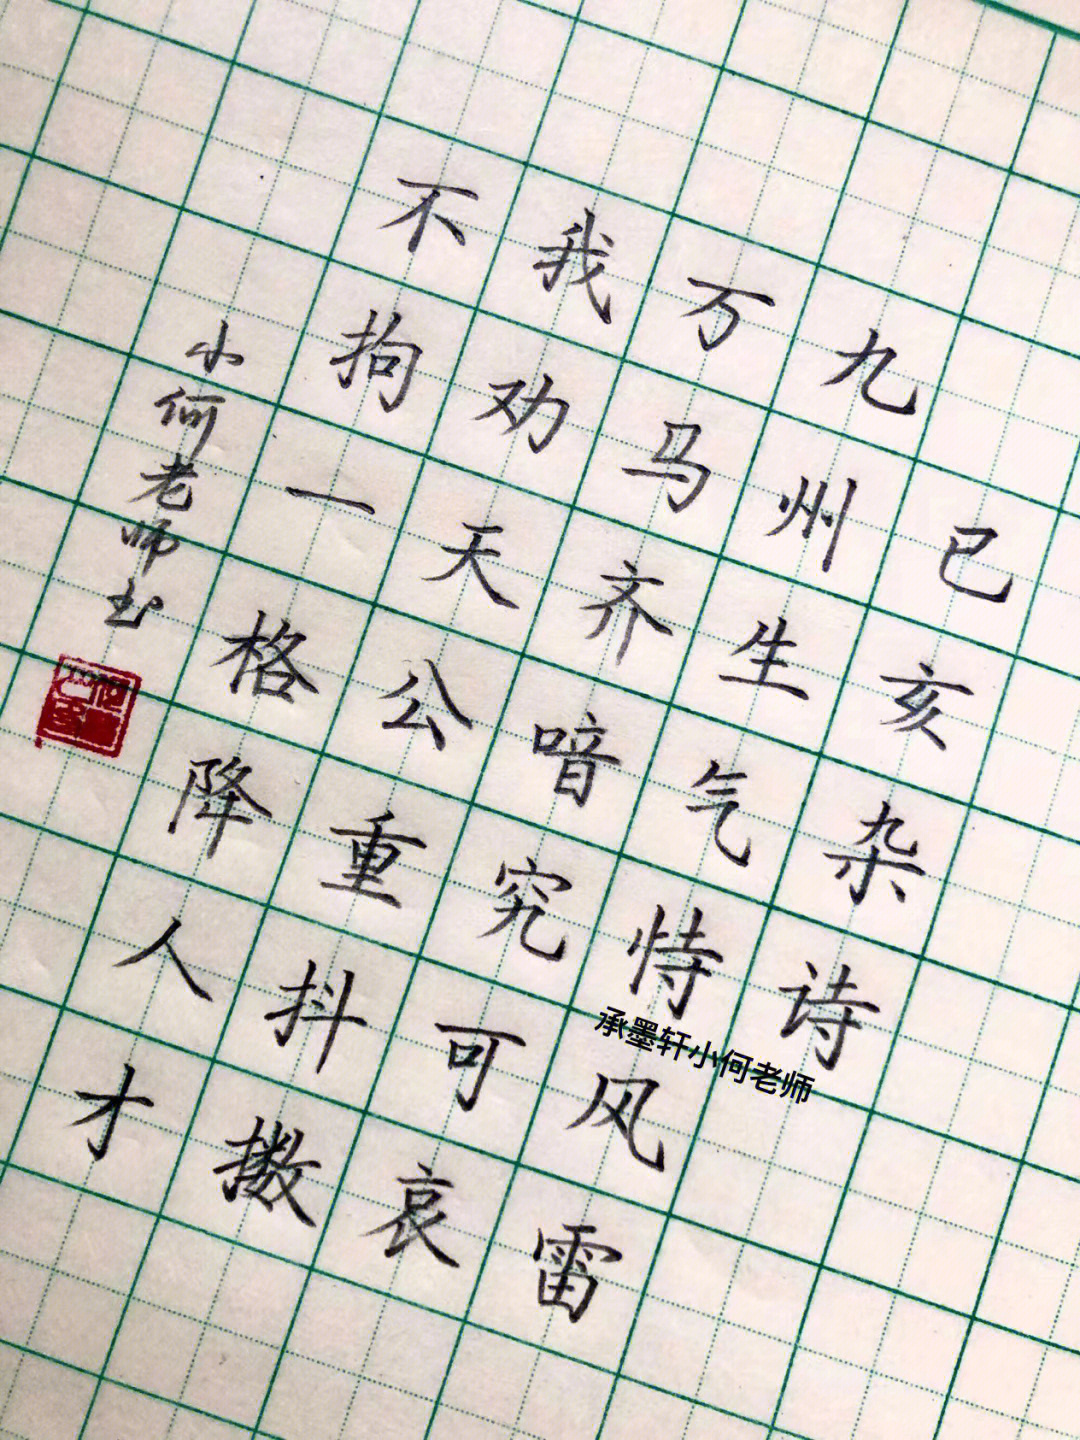 己亥杂诗
九州生气恃风雷
万马齐喑究可哀
我劝天公重抖擞
不拘一格降人才
小何老师书
承墨轩小何老师